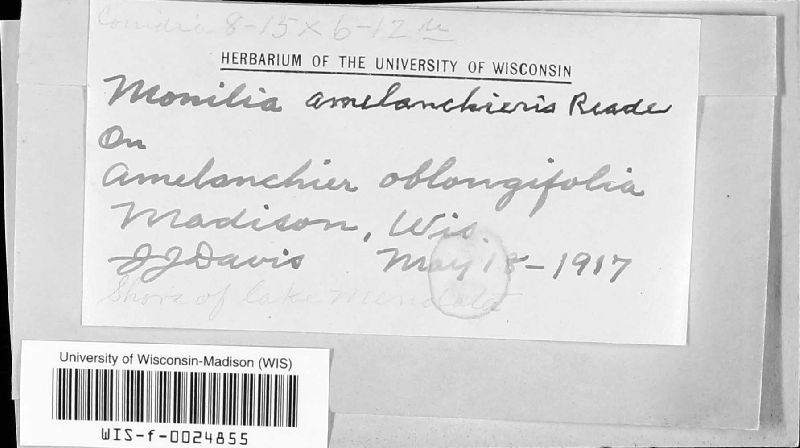 Conidia 8-15 x 6-12 µ
HERBARIUM OF THE UNIVERSITY OF WISCONSIN
Monilia amelanchieris Reade
On
Amelanchier oblongifolia
Madison, Wis.
JJDavis May 18-1917
Shore of lake Mendota
University of Wisconsin-Madison (WIS)
WIS-f-0024855